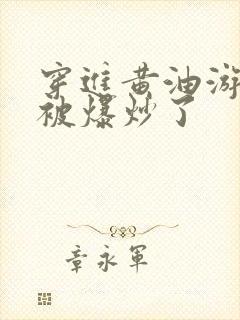 穿進黄油游
被爆炒了
章永軍